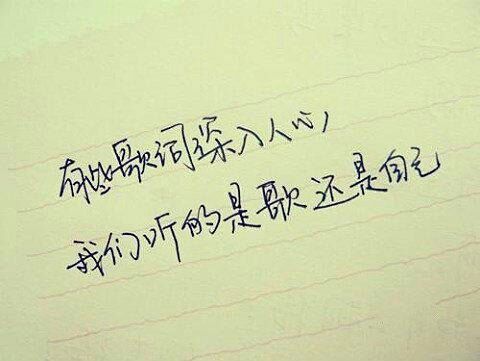 有些歌词深入人心，
我们听的是歌还是自己